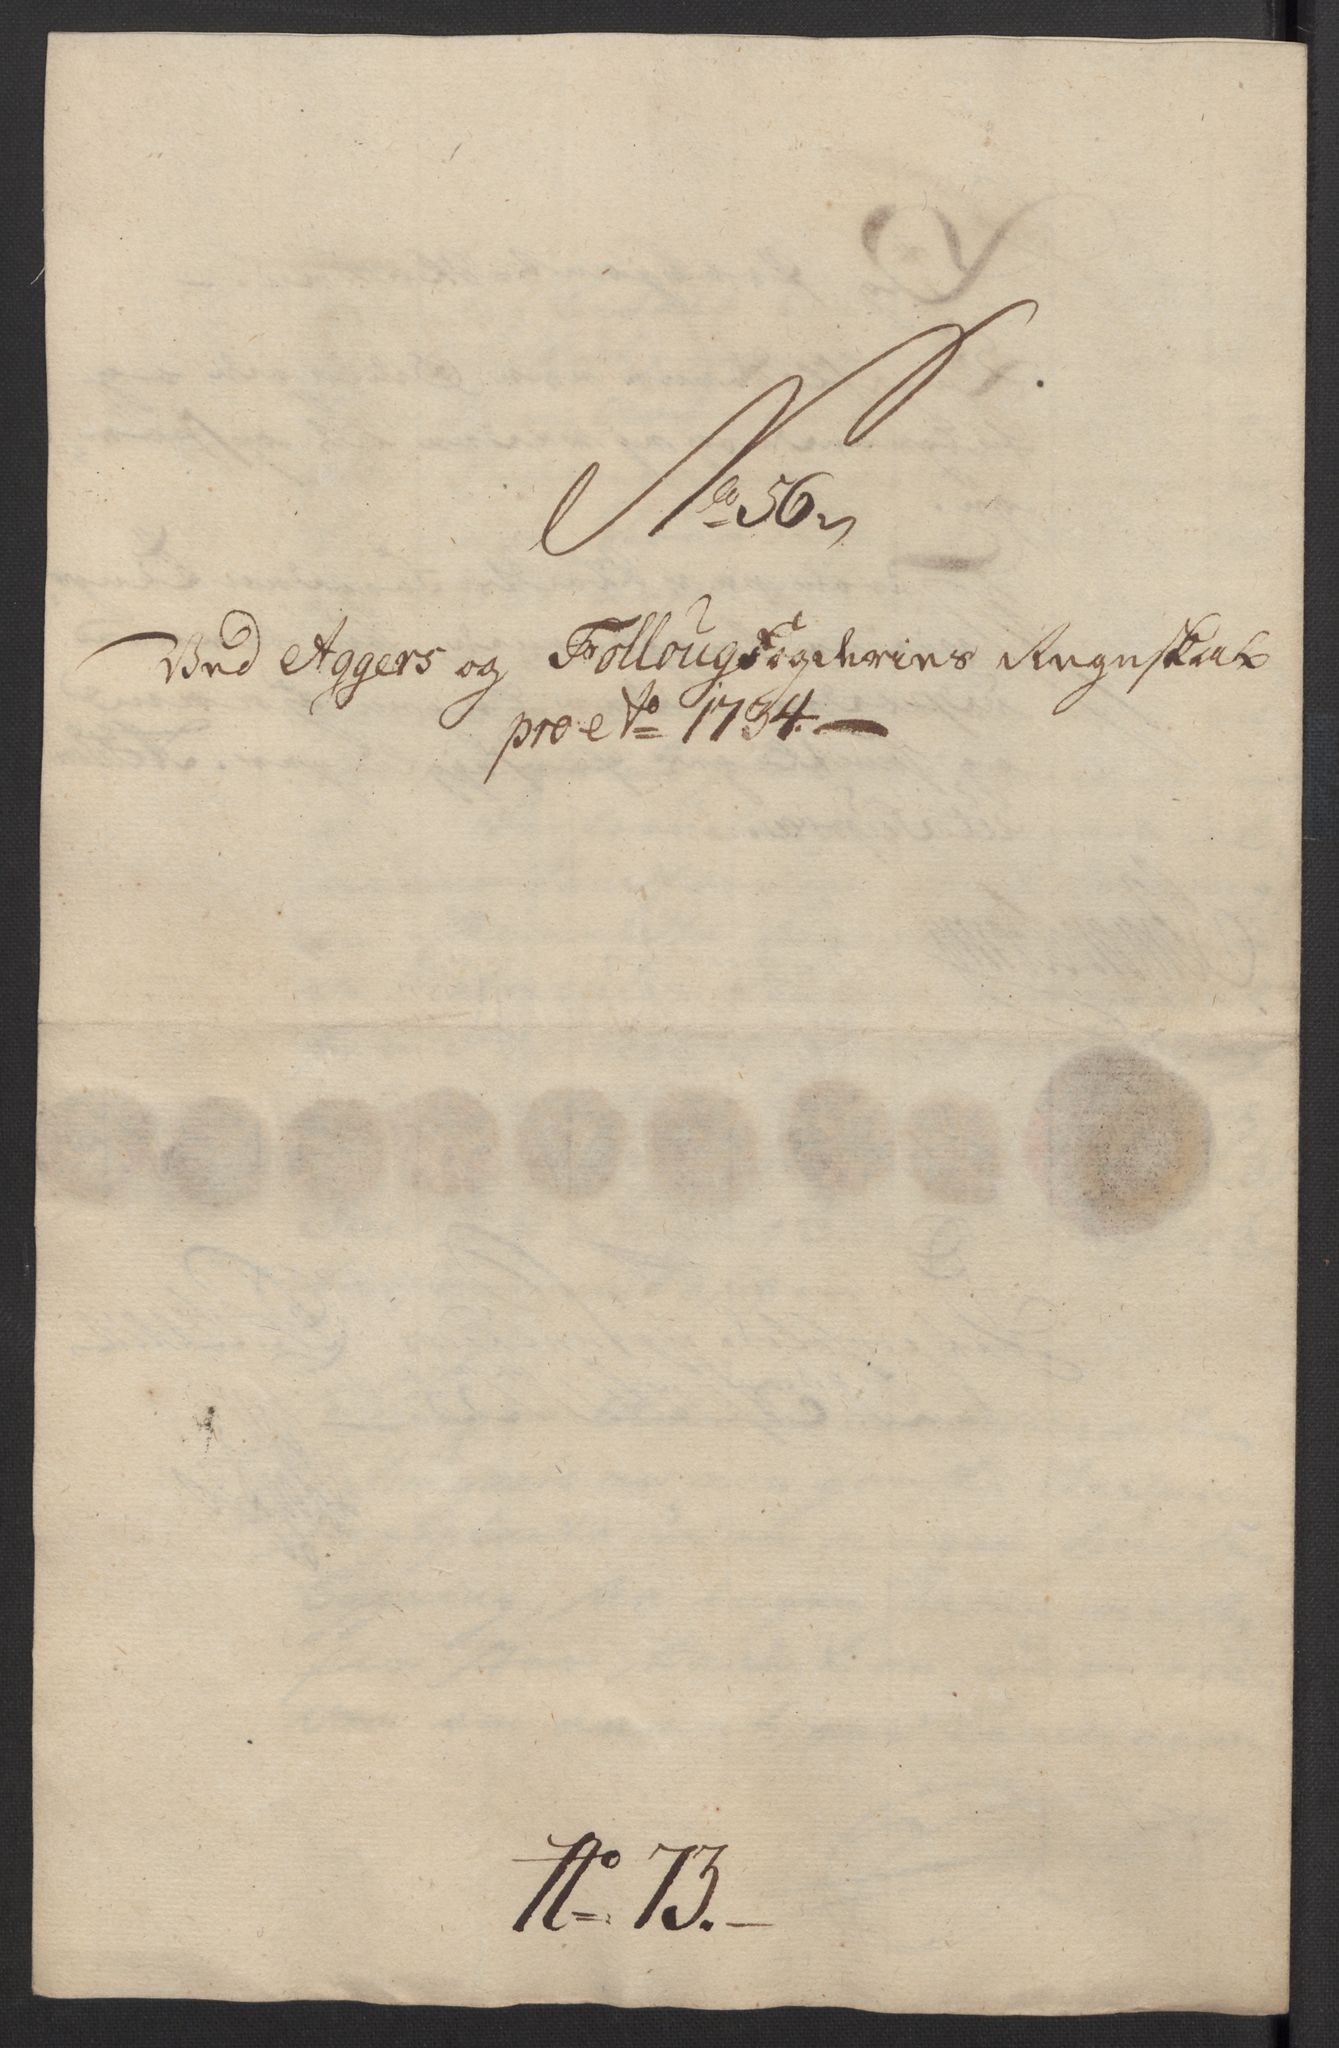 No 56.
Ved Aggers og Follougs Fogderies Regnskab
pro Ao 1734.
No 73.